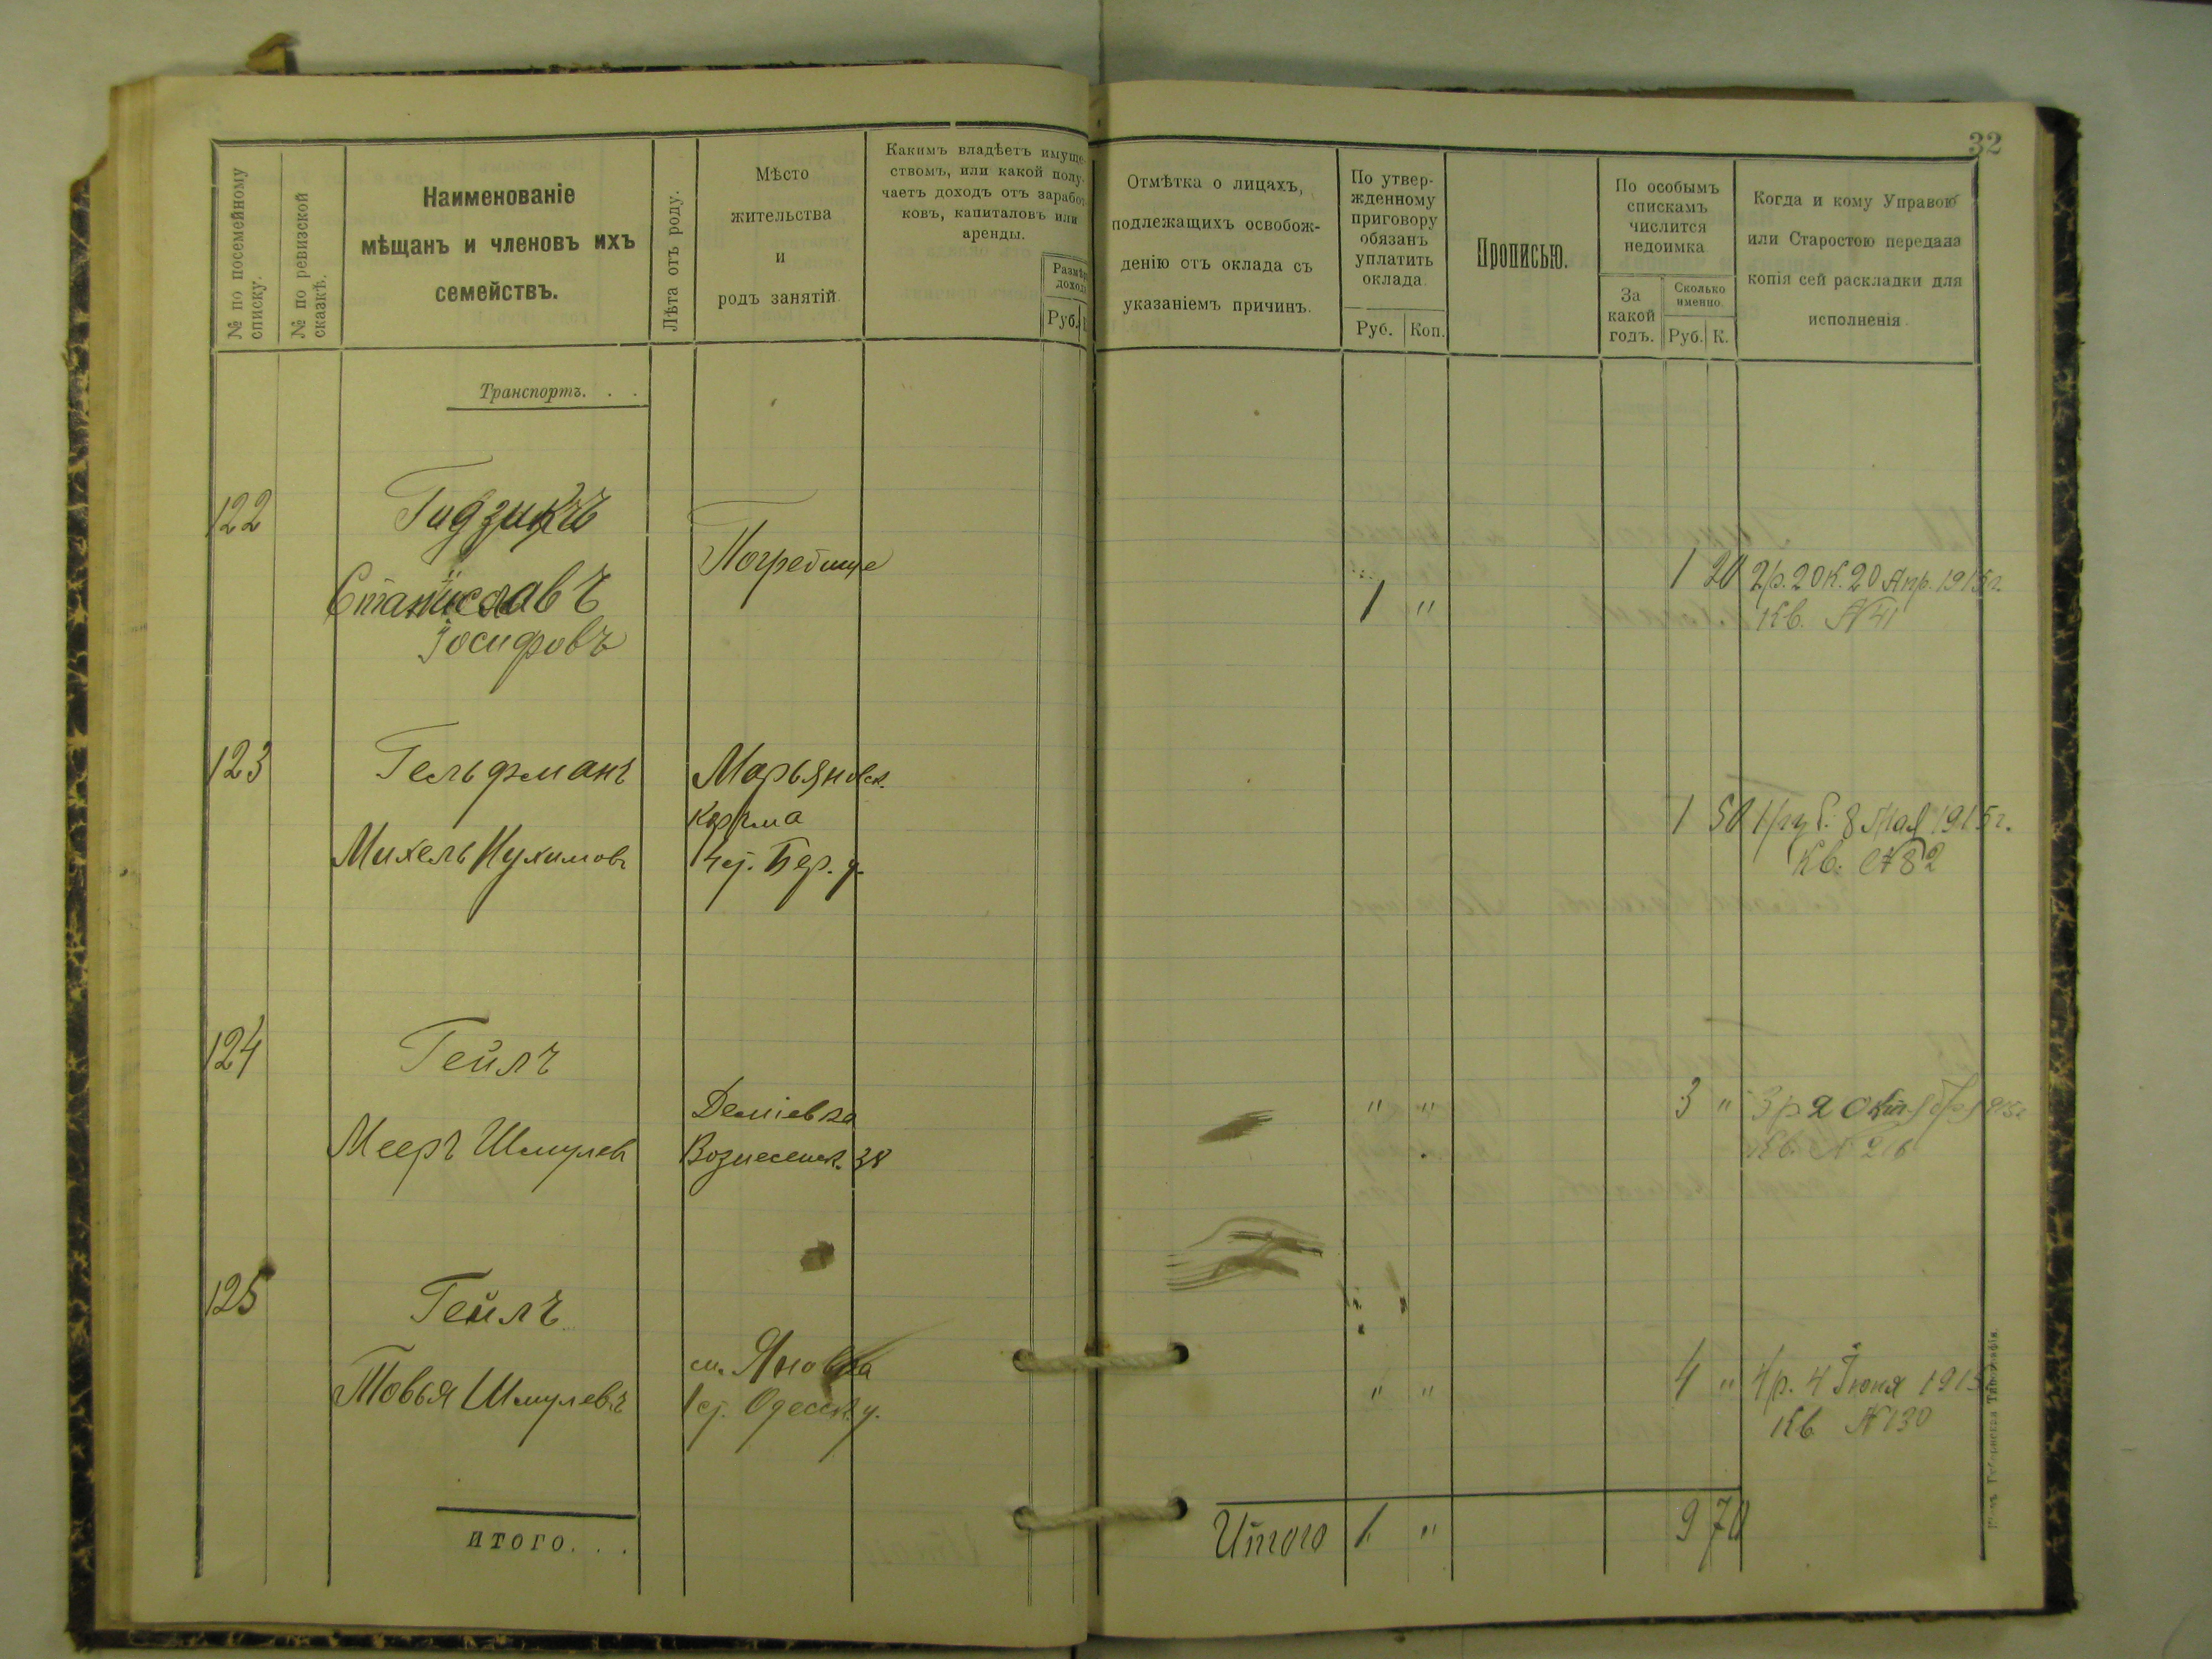 32
№ по посемейному
списку.
№ по ревизской
сказкѣ.
Наименованіе
мѣщанъ и членовъ ихъ
семействъ.
Лѣта отъ роду.
Мѣсто
жительства
и
родъ занятій.
Какимъ владѣетъ имуще-
ствомъ, или какой полу-
чаетъ доходъ отъ заработ-
ковъ, капиталовъ или
аренды.
Размѣръ
дохода
Руб.
Отмѣтка о лицахъ,
подлежащихъ освобож-
денію отъ оклада съ
указаніемъ причинъ.
По утвер-
жденному
приговору
обязанъ
уплатить
оклада.
Руб. Коп.
Прописью.
По особымъ
спискамъ
числится
недоимка
За
какой
годъ.
Сколько
именно.
Руб. К.
Когда и кому Управою
или Старостою передана
копія сей раскладки для
исполненія.
Транспортъ. . .
122
Гидзикъ
Станиславъ
Іосифовъ
Погребище
1 "
1 20
2 р. 20 к. 20 Апр. 1915 г.
Кв. № 41
123
Гельфманъ
Михель Нухимовъ
Марьяновск.
корчма
Бер. у.
1 50
1 руб. 8 Мая 1915 г.
Кв. № 82
124
Гейлъ
Мееръ Шмулев
Деміевка
Вознесенск. 38
" "
3 "
3 р
Кв. №
125
Гейлъ
Товья Шмулевъ
м. Яновка
Одесск. у.
" "
4 "
4 р. 4 Іюня 1915
Кв № 130
ИТОГО. . .
Итого
1 "
9 70